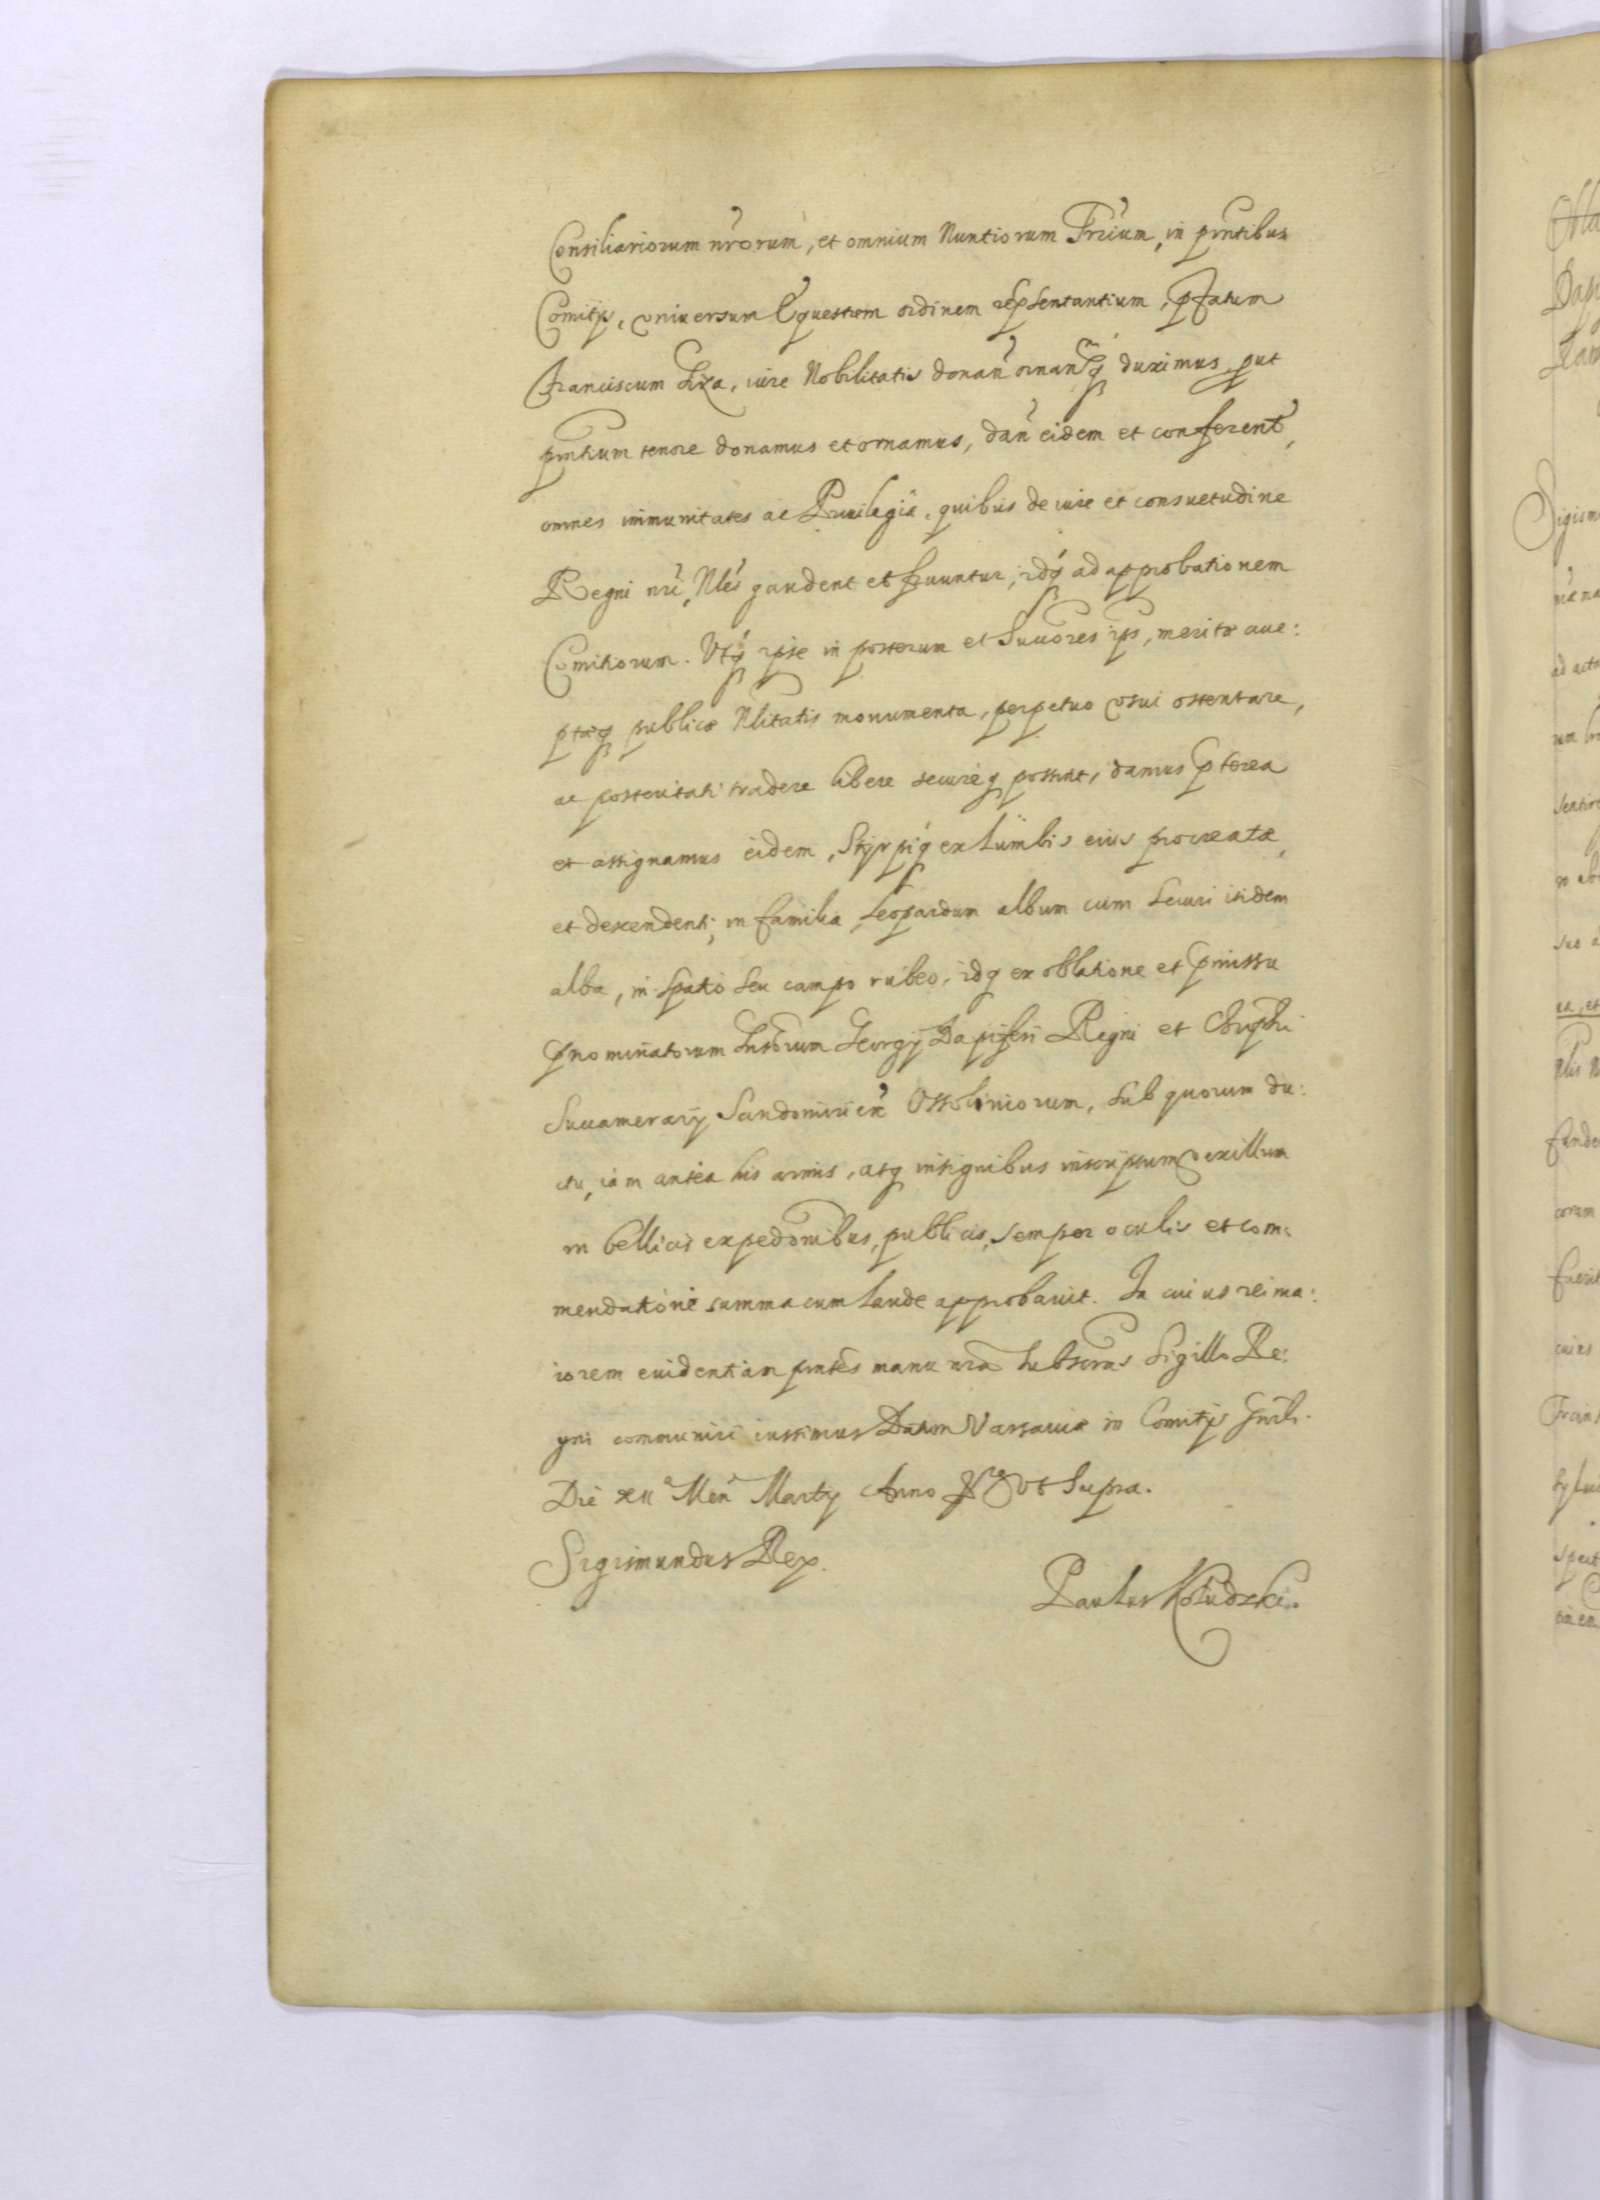 Consiliariorum nrorum, et omnium Nuntiorum Trium, in pntibus
Comitijs, vniuersum Equestrem ordinem repsentantium, pfatum
Franciscum, iure Nobilitatis donan ornanq duximus, put
pntium tenore donamus et ornamus, dan eidem et conferen,
omnes immunitates ac Priuilegia, quibus de iure et consuetudine
Regni nri, Nles gaudent et fruuntur, idq ad approbationem
Comitiorum. Vtq ipse in posterum et Succores ips, merito aue:
ptaeq publicae Nlitatis monumenta, perpetuo vsui ostentare,
ac posteritati tradere libere secureq possint, damus pterea
et assignamus eidem, Styrpiq ex lumbis eius procreatae,
et descendenti, in familia, Leopardum album cum securi itidem
alba, in spatio seu campo rubeo, idq ex oblatione et pmissu
pnominatorum Gnsorum Georgij Dapiferi Regni et Chrphi
Succamerarij Sandomirien Ossoliniorum, sub quorum du:
ctu, iam antea his armis, atq insignibus inscriptum vexillum
in bellicis expedonibus, publicis, semper oculis et com:
mendatione summa cum laude approbauit. In cuius rei ma:
iorem euidentiam pntes manu nra subscras Sigillo Re:
gni communiri iussimus Datum Varsauiae in Comitijs Gnrlb.
Die XII Men Martij Anno vt supra.
Sigismundus Rex.
Paulus Kołudzki.